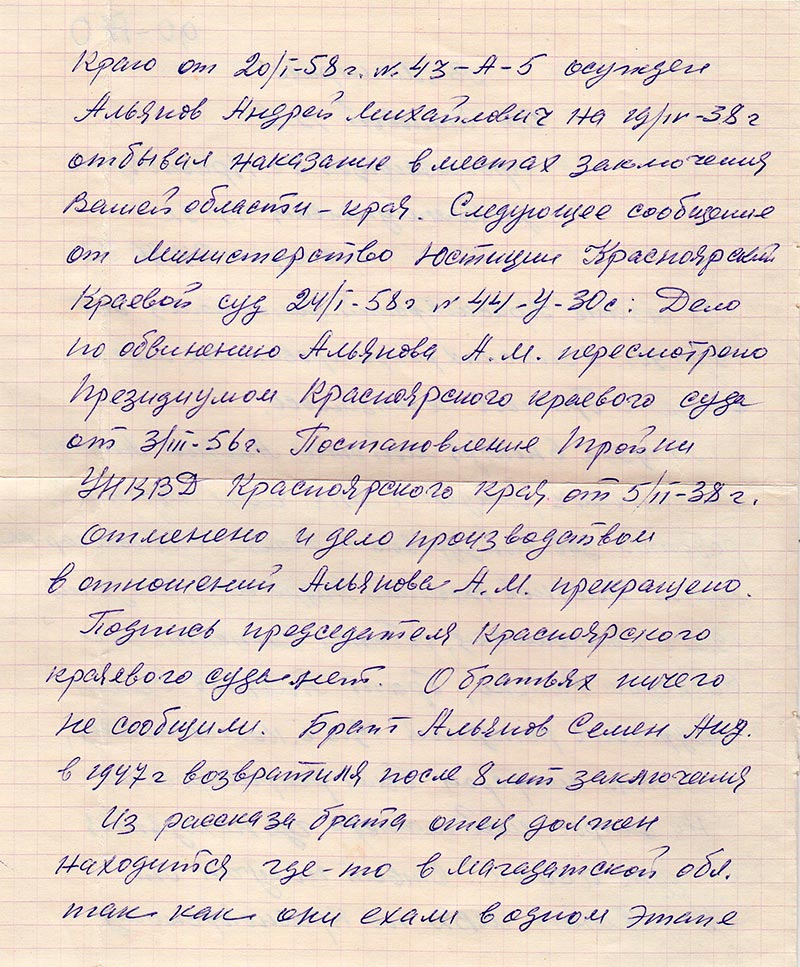 Краю от 20/I-58 г. № 43-А-5 осужден
Альянов Андрей Михайлович на 19/IV-38 г
отбывал наказание в местах заключения
Вашей области-края. Следующее сообщение
от Министерство Юстиции Красноярский
Краевой суд 24/I-58 г № 44-У-30с: Дело
по обвинению Альянова А.М. пересмотрено
Президиумом Красноярского краевого суда
от 3/III-56 г. Постановление Тройки
УНКВД Красноярского края от 5/II-38 г.
отменено и дело производством
в отношений Альянова А.М. прекращено.
Подпись председателя Красноярского
краявого суда нет. О братьях ничего
не сообщили. Брат Альянов Семен Анд.
в 1947 г возвратился после 8 лет заключения
Из рассказа брата отец должен
находится где-то в Магадатской обл.
так как они ехали в одном этапе